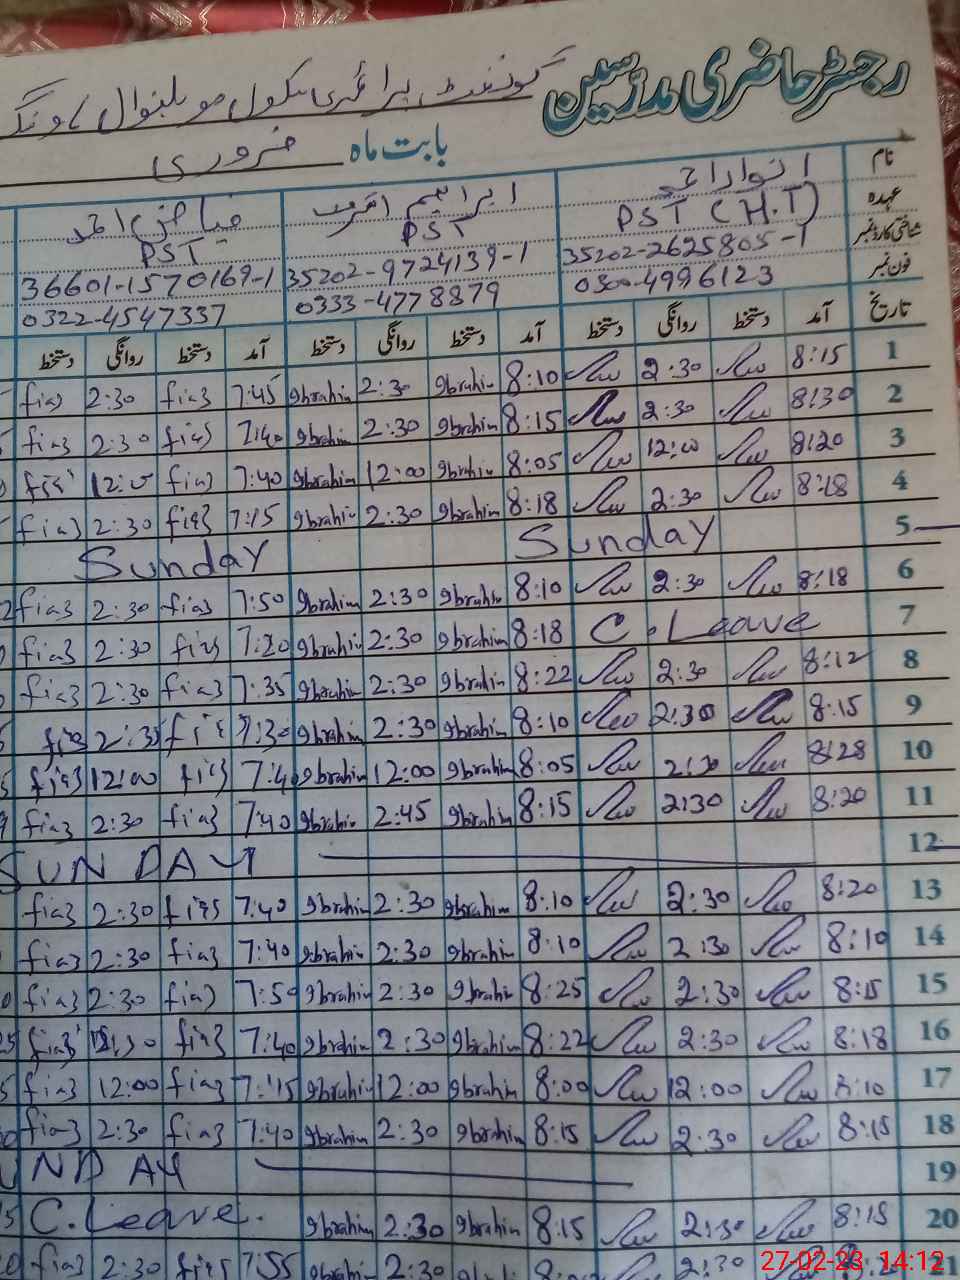 رجسٹر حاضری مدرسین گورنمنٹ پرائمری سکول
بابت ماہ فروری
نام انوار احمد ابراہیم فیاض احمد
عہدہ PST (H.T) PST PST
شناختی کارڈ نمبر 35202-2625805-1 35202-9724139-1 36601-1570169-1
فون نمبر 0300-4996123 0333-4778879 0322-4547337
تاریخ آمد دستخط روانگی دستخط آمد دستخط روانگی دستخط آمد دستخط روانگی دستخط
1 8:15 2:30 8:10 Ibrahim 2:30 Ibrahim 7:45 fia3 2:30 fia3
2 8:30 2:30 8:15 Ibrahim 2:30 Ibrahim 7:40 fia3 2:30 fia3
3 8:20 12:00 8:05 Ibrahim 12:00 Ibrahim 7:40 fia3 fia3
4 8:18 2:30 8:18 Ibrahim 2:30 Ibrahim 7:15 fia3 2:30 fia3
5 Sunday Sunday
6 8:18 2:30 8:10 Ibrahim 2:30 Ibrahim 7:50 fia3 2:30 fia3
7 C. Leave 8:18 Ibrahim 2:30 Ibrahim 7:20 fia3 2:30 fia3
8 8:12 2:30 8:22 Ibrahim 2:30 Ibrahim 7:35 fia3 2:30 fia3
9 8:15 2:30 8:10 Ibrahim 2:30 Ibrahim 7:30 fia3 fia3
10 8:28 2:30 8:05 Ibrahim 12:00 Ibrahim fia3 12:00 fia3
11 8:20 2:30 8:15 Ibrahim 2:45 Ibrahim 7:40 fia3 2:30 fia3
12 SUNDAY
13 8:20 2:30 8:10 Ibrahim 2:30 Ibrahim 7:40 fia3 2:30 fia3
14 8:10 2:30 8:10 Ibrahim 2:30 Ibrahim 7:40 fia3 2:30 fia3
15 8:15 2:30 8:25 Ibrahim 2:30 Ibrahim 7:50 fia3 2:30 fia3
16 8:18 2:30 8:22 Ibrahim 2:30 Ibrahim 7:40 fia3 fia3
17 8:10 12:00 8:00 Ibrahim 12:00 Ibrahim 7:15 fia3 12:00 fia3
18 8:15 2:30 8:15 Ibrahim 2:30 Ibrahim 7:40 fia3 2:30 fia3
19 UNDAY
20 8:15 2:30 8:15 Ibrahim 2:30 Ibrahim C. Leave.
21 2:30 2:30 7:55 fia3 2:30 fia3
27-02-23 14:12